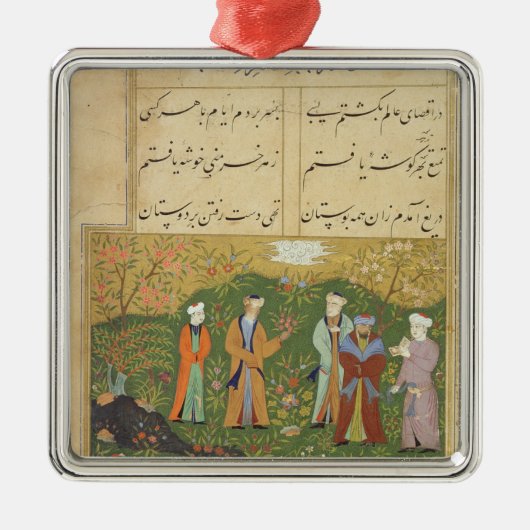 در اقصای عالم بگشتم بسی بسر بردم ایام با هر کسی
تمتع بهر گوشهٔ یافتم زهر خرمنی خوشهٔ یافتم
دریغ آمدم زان همه بوستان تهی دست رفتن بر دوستان